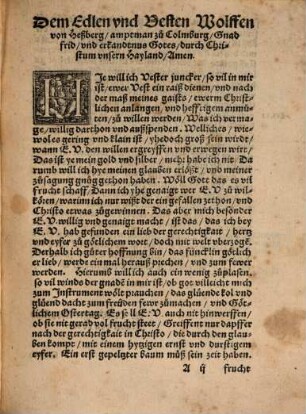 Dem Edlen vnd Vesten Wolffen
von Heßberg / amptman zů Colmburg / Gnad
frid / vnd erkandtnus Gotes / durch Chri-
stum vnsern Hayland / Amen.
Je will ich Vester juncker / so vil in mir
ist / ewer Vest ein raiß dienen / vnd nach
der maß meines gaists / ewerm Christ-
lichen anlangen / vnd heffrigem anmů-
ten / zů willen werden / Was ich vermag
ge / willig darthon vnd außspenden. Welliches / wie
wol es gering vnd klain ist / yhedoch groß sein würde /
wann E. V. den willen ergreyffen vnd erwegen wirt.
Das ist ye mein gold vnd silber / nicht habe ich mit. Da
rumb will ich hye meinen glauben erlößt / vnd meiner
zůsagung gnůggethon haben / Wöll Got das es
vil frucht schaff / Dann ich yhe genaigt wer E. V. zů wil-
kören / warinn ich nur wißt der ein gefallen zethon / vnd
Christo etwas zůgewinnen. Das aber mich besonder
E. V. willig vnd genaigt macht / ist das / das ich bey
E. V. hab gefunden ein lieb der gerechtigkeit / ein
hertz vnd eyfer zů götlichem wort / doch mit welt vberzogē.
Derhalb ich gůter hoffnung bin / das füncklin götlich
er lieb / werde ein mal herauß pochen / vnd zum fewer
werden. Hierumb will ich auch ein wenig zůplasen /
so vil winds der gnadē in mir ist / ob got villeicht mich
zum Instrument wölt prauchen / das glüende kol vnd
glüend dacht zum freüden fewr zůmachen / vnd Göt-
lichem Ostertag. Es soll E. V. auch nit hinwerffen /
ob sie nit gerad vol frucht steet / Greiffent nur dapffer
nach der gerechtigkait in Christo / die durch den glau-
ben kompt / mit einem hitzigen ernst vnd durstigem
eyfer. Ein erst gepeltzter baum můß sein zeit haben.
A ij frucht